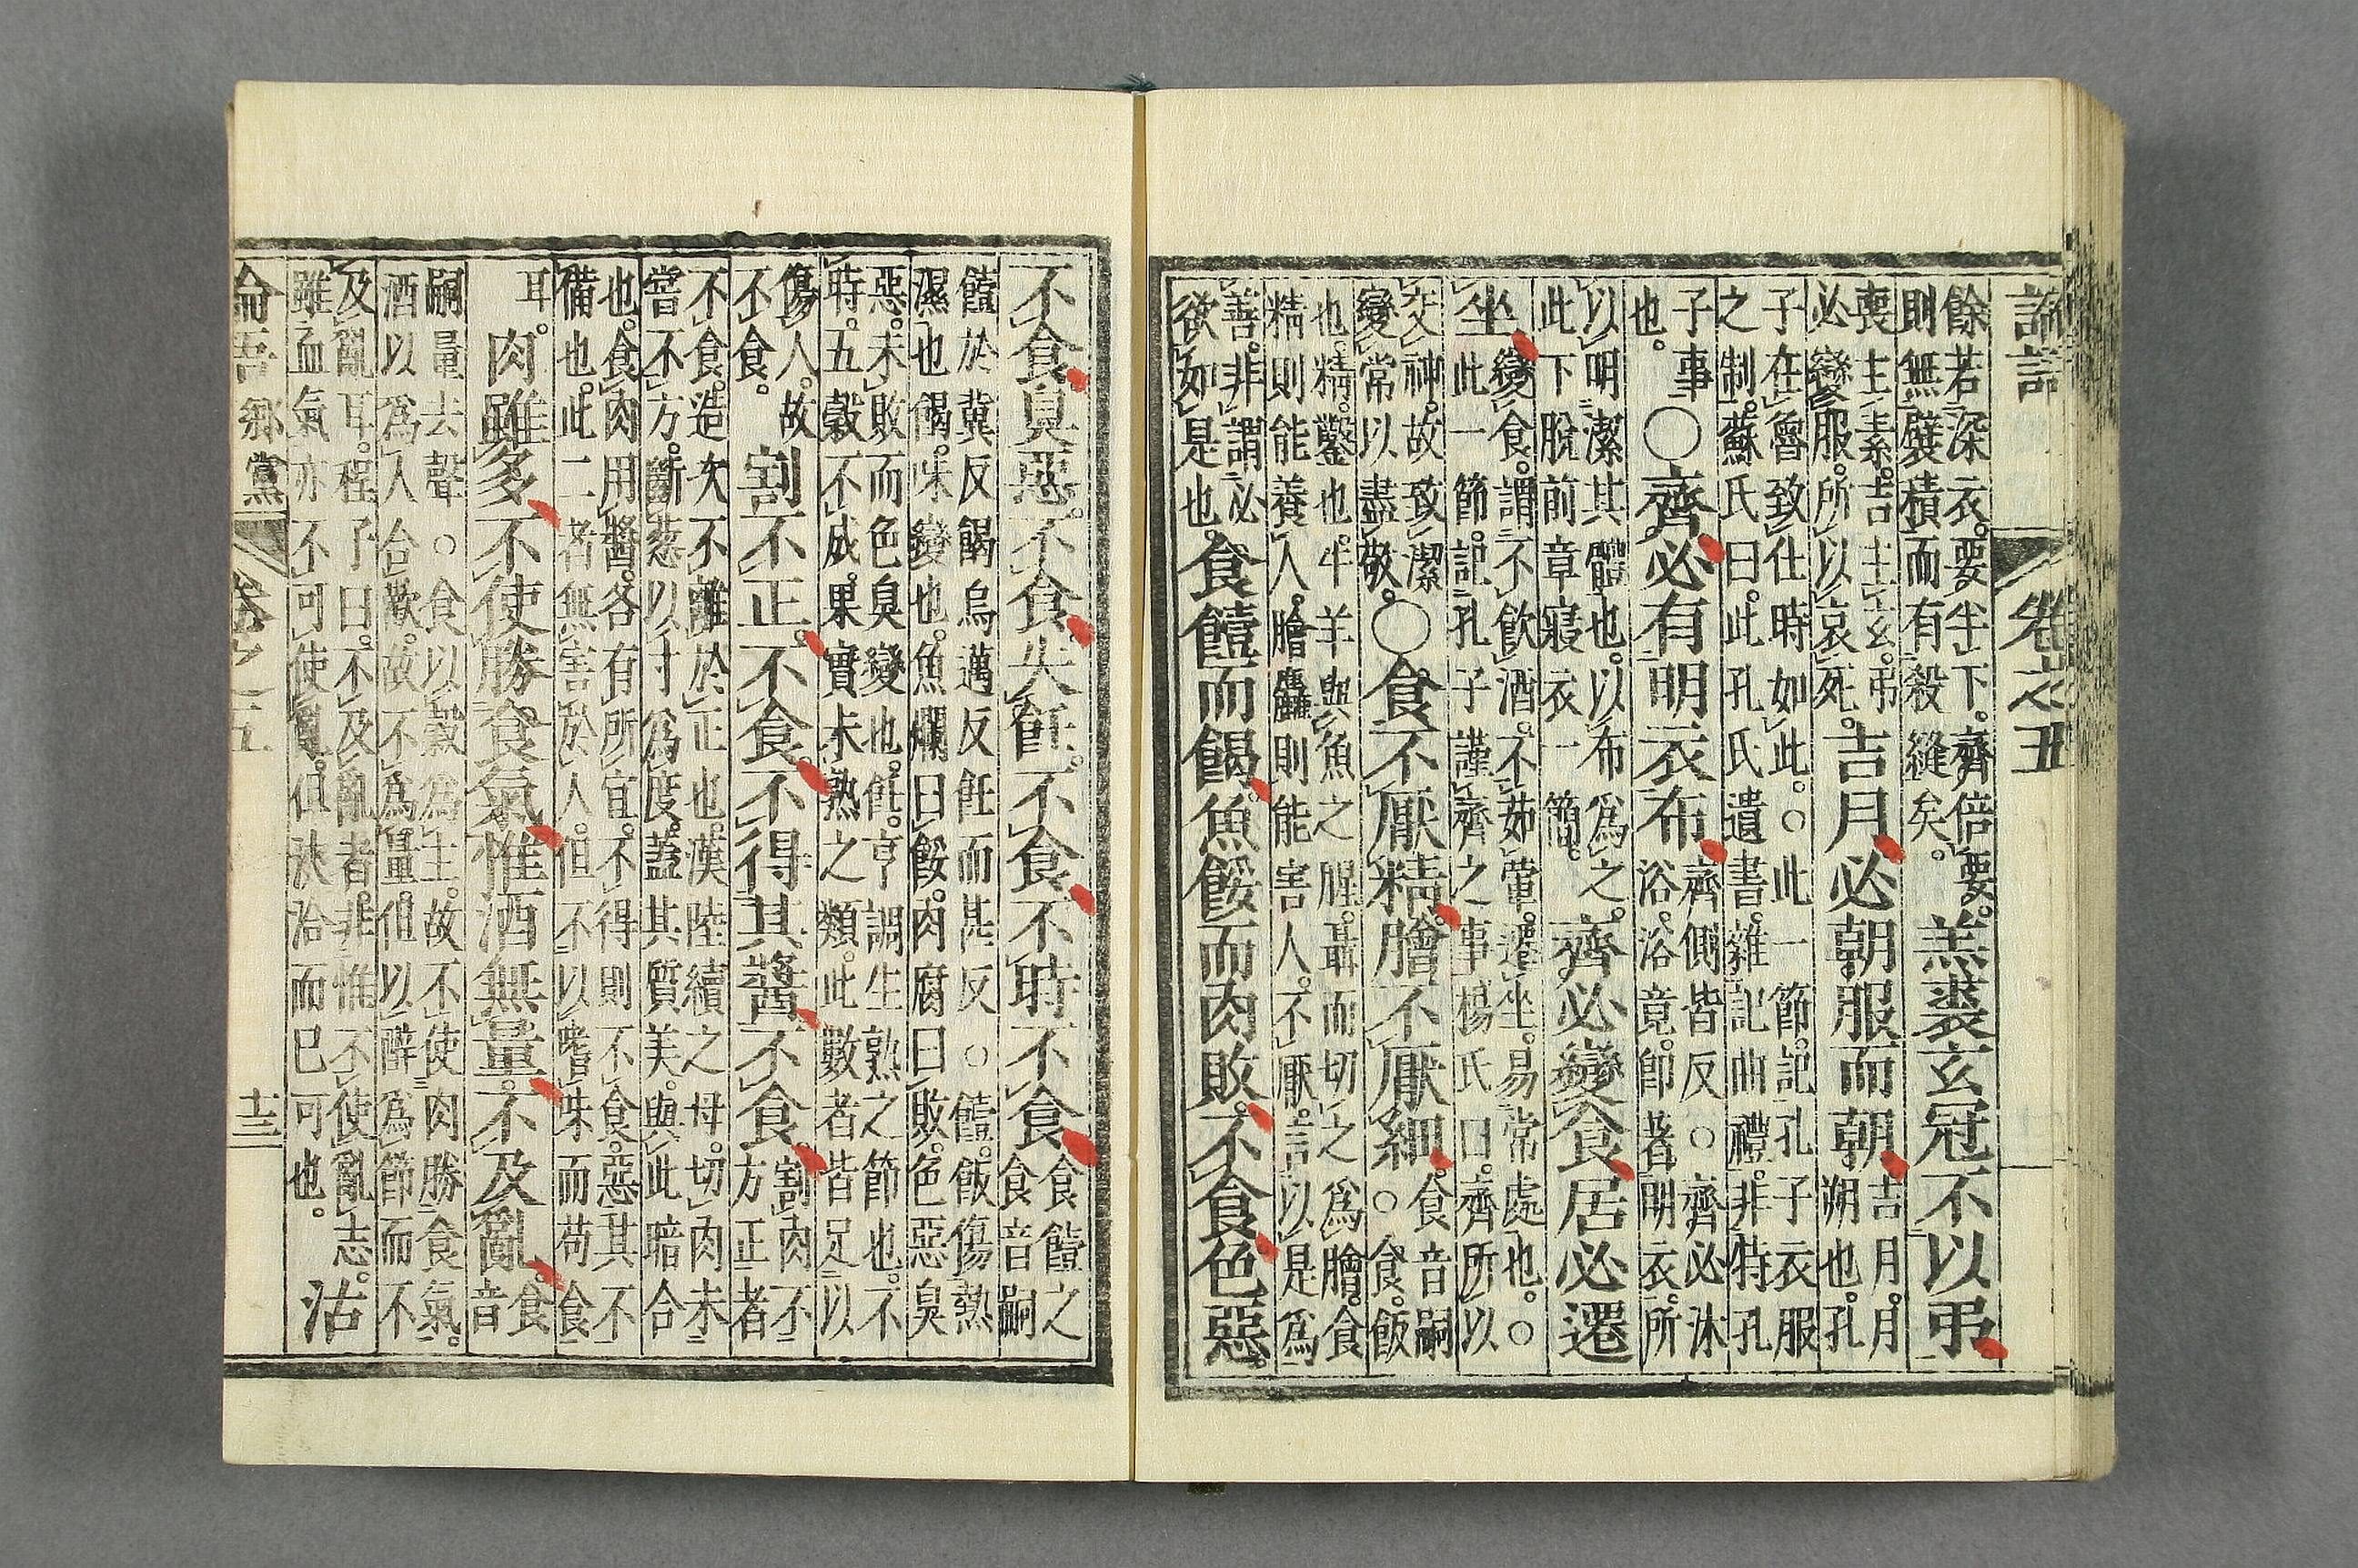 論語　卷之五
餘若深衣。要半下。齊倍要。
則無襞積而有殺縫矣。
羔裘玄冠不以弔
喪主素。吉主玄。弔
必變服。所以哀死。
吉月必朝服而朝。
吉月。月
朔也。孔
子在魯致仕時如此。○此一節。記孔子衣服
之制。蘇氏曰。此孔氏遺書。雜記曲禮。非特孔
子事
也。
○齊必有明衣布
齊側皆反○齊必沐
浴。浴竟。卽著明衣。所
以明潔其體也。以布爲之。
此下脫前章寢衣一簡。
齊必變食居必遷
坐
變食。謂不飮酒。不茹葷。遷坐。易常處也。○
此一節。記孔子謹齊之事楊氏曰。齊所以
交神。故致潔
變常以盡敬。
○食不厭精。膾不厭細。
食音嗣
○食。飯
也。精。鑿也。牛羊與魚之腥。聶而切之爲膾。食
精則能養人。膾麤則能害人。不厭。言以是爲
善。非謂必
欲如是也。
食饐而餲。魚餒而肉敗。不食。色惡。
不食。臭惡。不食。失飪。不食。不時不食
食饐之
食音嗣
饐於冀反餲烏邁反飪而甚反○饐。飯傷熱
濕也餲。味變也。魚爛曰餒。肉腐曰敗。色惡臭
惡。未敗而色臭變也。飪。亨調生熟之節也。不
時。五穀不成。果實未熟之類。此數者皆足以
傷人。故
不食。
割不正。不食。不得其醬。不食。
割肉不
方正者
不食。造次不離於正也。漢陸續之母。切肉未
嘗不方。斷葱以寸爲度。蓋其質美。與此暗合
也。食肉用醬。各有所宜。不得則不食。惡其不
備也。此二者無害於人。但不以嗜味而苟食
耳。
肉雖多。不使勝食氣。惟酒無量。不及亂。
食
音
嗣量去聲○食以穀爲主。故不使肉勝食氣。
酒以爲人合歡。故不爲量。但以醉爲節而不
及亂耳。程子曰。不及亂者。非惟不使亂志。
雖血氣亦不可使亂。但浹洽而已可也。
沽
論吾　鄉黨　卷之五　十三